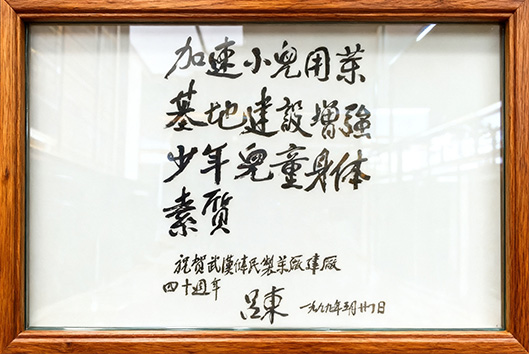 加速小兒用薬
基地建設增強
少年兒童身体
素質
祝賀武漢健民製薬厰建厰
四十週年
呂東 一九八九年 月廿 日